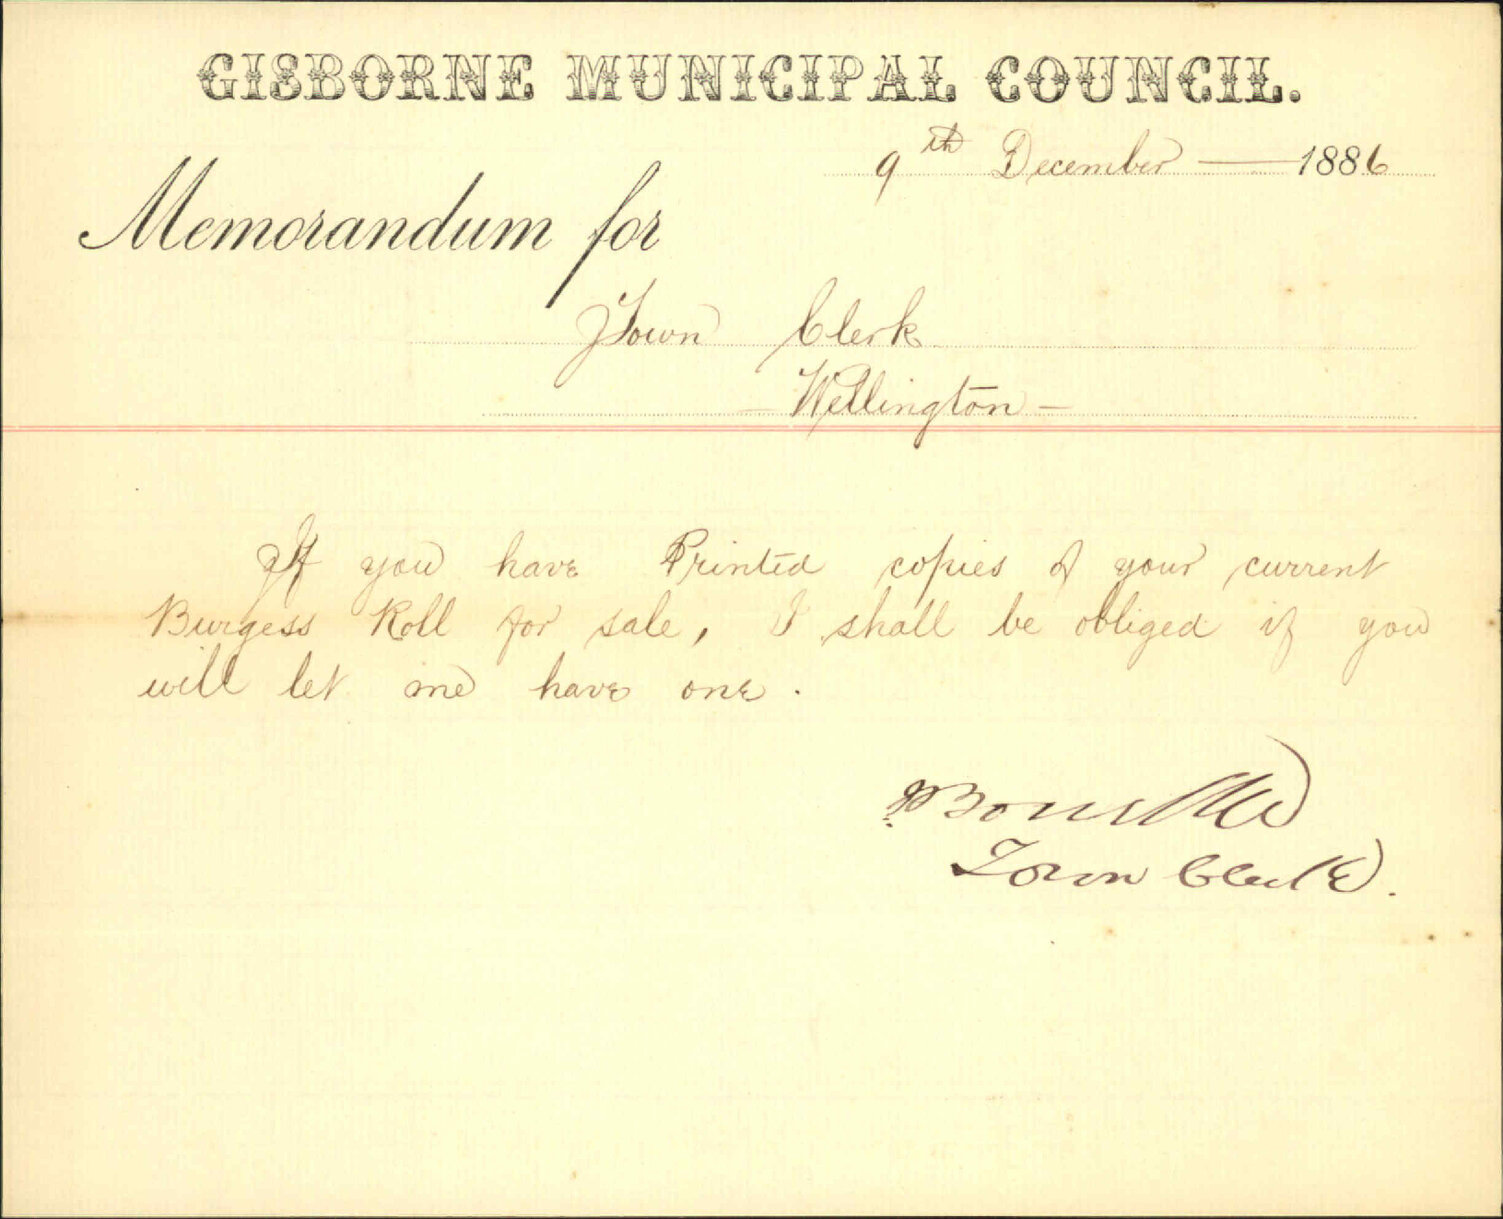 GISBORNE MUNICIPAL COUNCIL.
9th December — 1886
Memorandum for
Town Clerk
— Wellington —
If you have Printed copies of your current
Burgess Roll for sale, I shall be obliged if you
will let me have one.
Town Clerk.